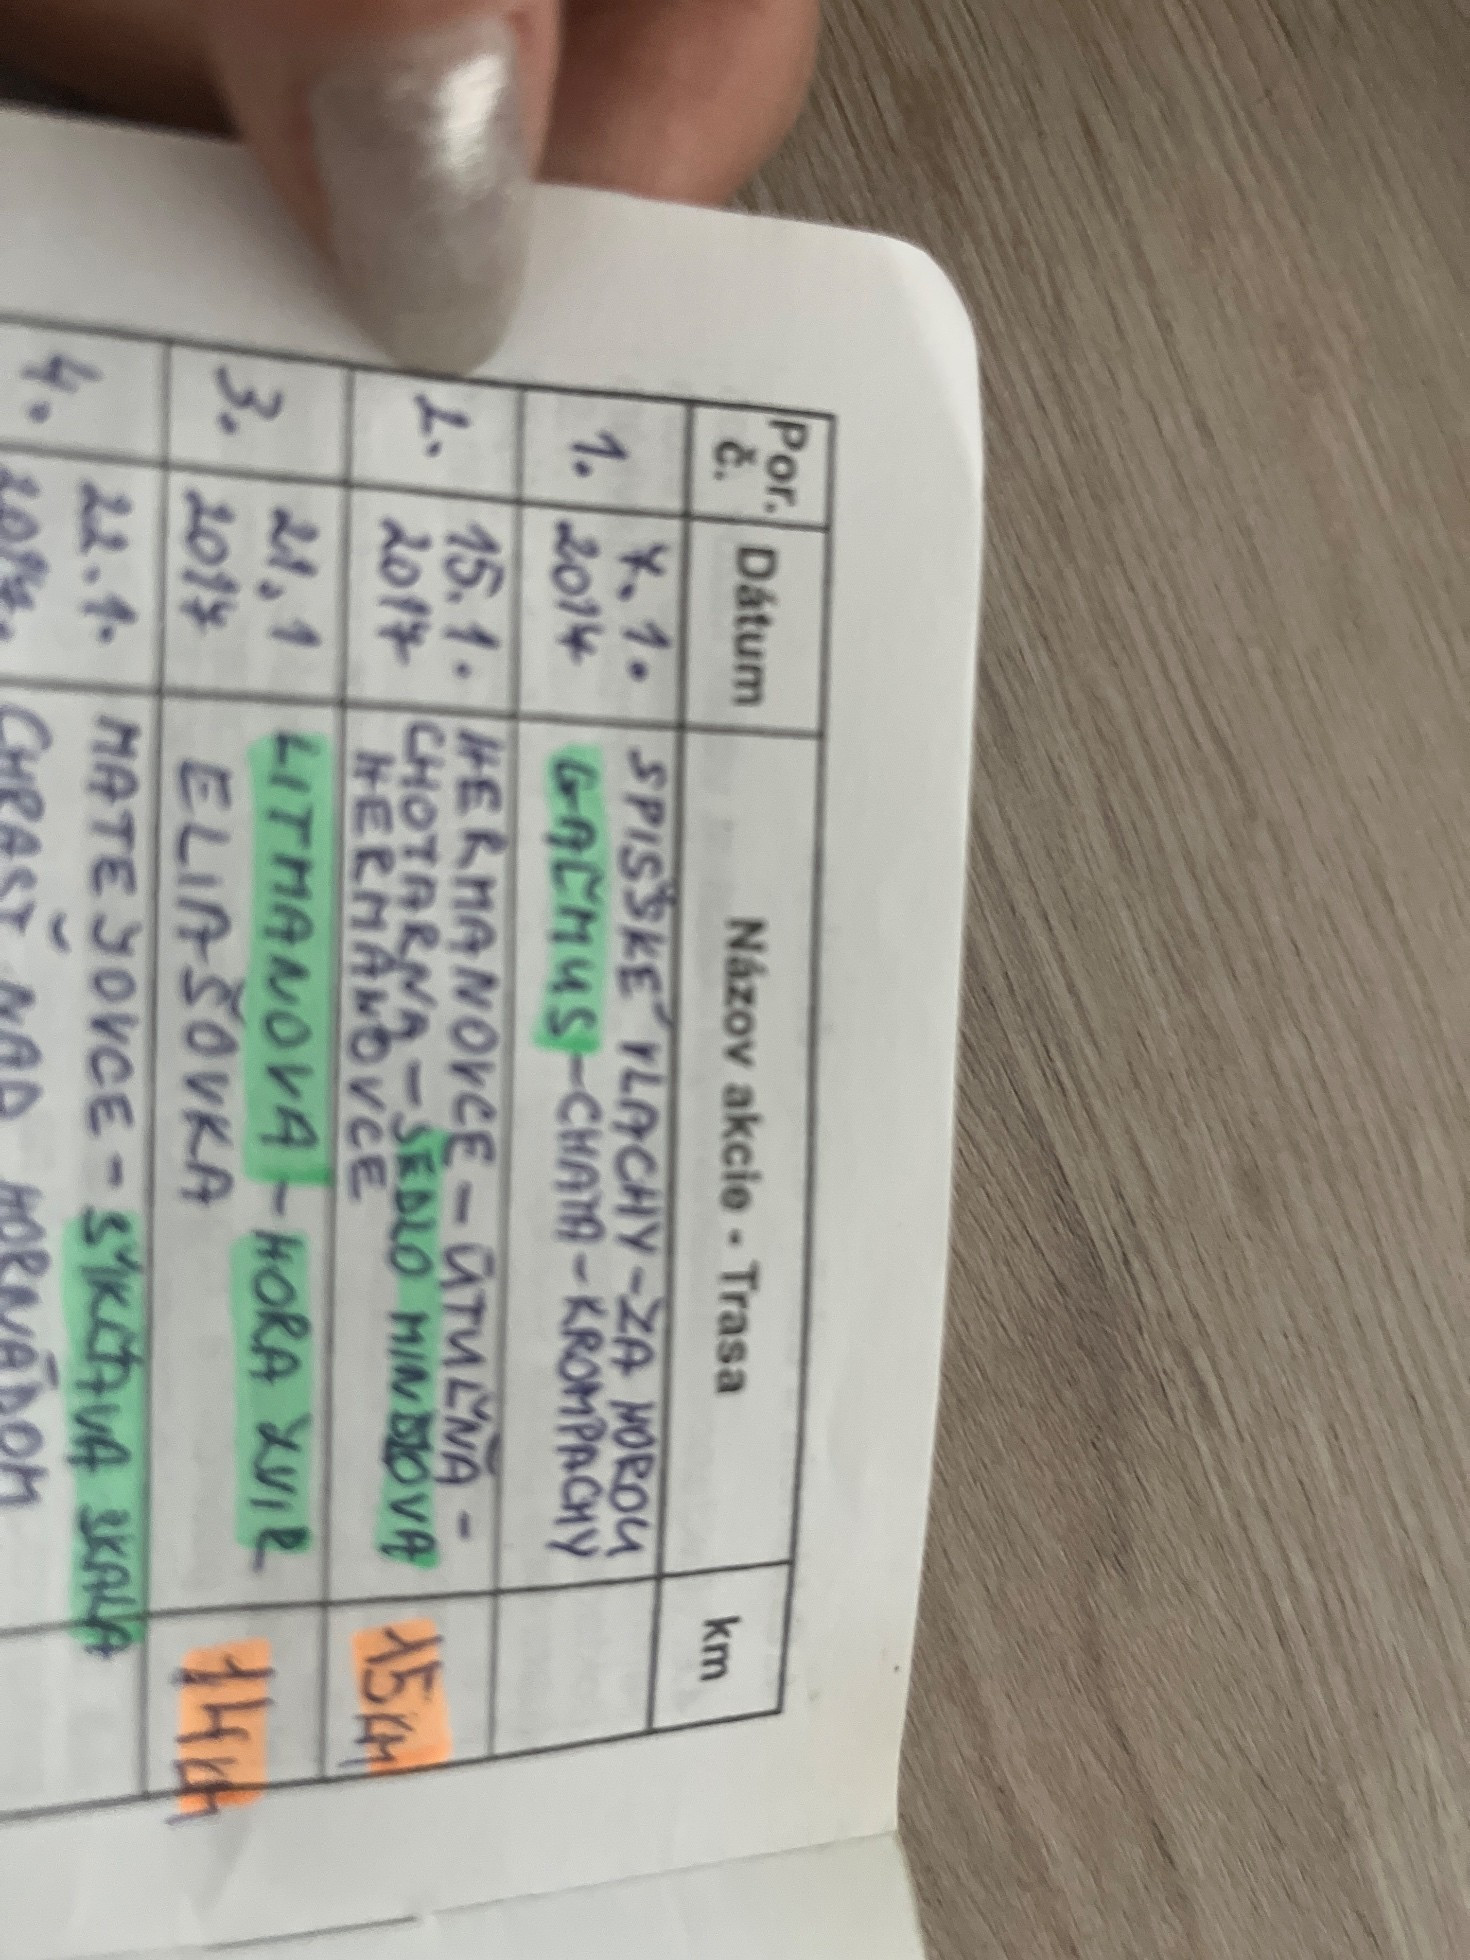 Por. č. Dátum Názov akcie - Trasa km
1. 7. 1. 2017 SPIŠSKÉ VLACHY - ZA HOROU
GALMUS - CHATA - KROMPACHY
2. 15. 1. 2017 HERMANOVCE - ÚTULŇA -
CHOTARNA - SEDLO MINDOVA
HERMANOVCE
15 KM
3. 21. 1 2017 LITMANOVA - HORA ZVIR
ELIAŠOVKA
14 KM
4. 22. 1. 2017. MATEJOVCE - SYKAVA SKALA
CHRASŤ NAD HORNÁDOM